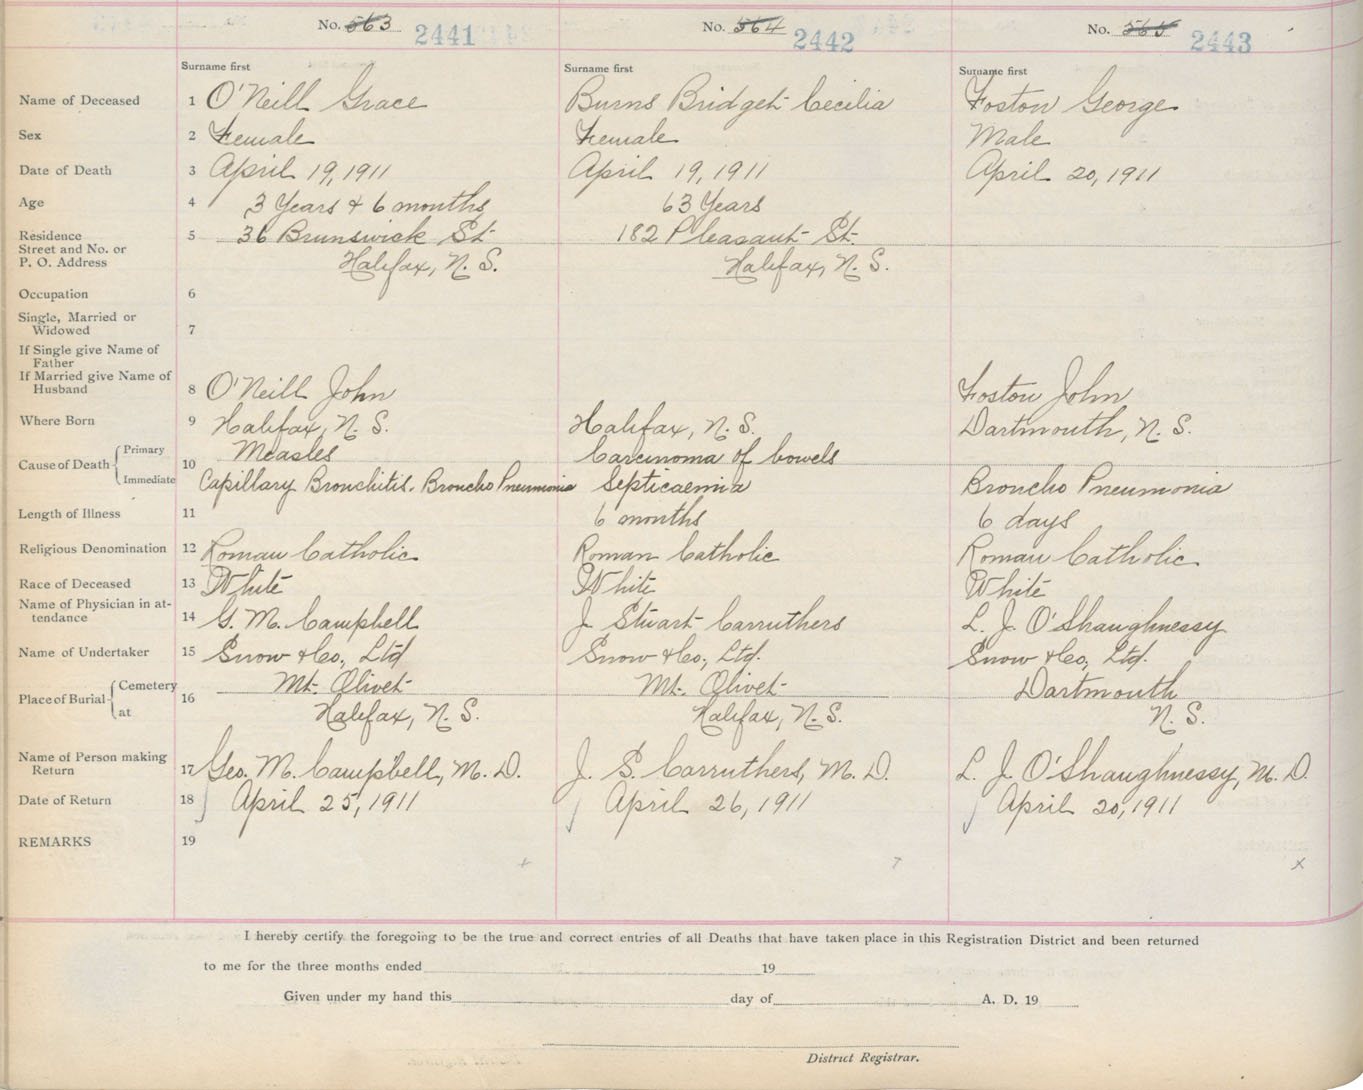 No. 563 2441
No. 564 2442
No. 565 2443
Surname first
Surname first
Surname first
Name of Deceased 1 O'Neill Grace
Burns Bridget Cecilia
Foston George
Sex 2 Female
Female
Male
Date of Death 3 April 19, 1911
April 19, 1911
April 20, 1911
Age 4 3 Years & 6 months
63 Years
Residence
Street and No. or
P. O. Address
5 36 Brunswick St
Halifax, N. S.
182 Pleasant St.
Halifax, N. S.
Occupation 6
Single, Married or
Widowed
7
If Single give Name of
Father
If Married give Name of
Husband
8 O'Neill John
Foston John
Where Born 9 Halifax, N. S.
Halifax, N. S.
Dartmouth, N. S.
Cause of Death Primary
Immediate
10 Measles
Capillary Bronchitis. Broncho Pneumonia
Carcinoma of bowels
Septicaemia
Broncho Pneumonia
Length of Illness 11
6 months
6 days
Religious Denomination 12 Roman Catholic
Roman Catholic
Roman Catholic
Race of Deceased 13 White
White
White
Name of Physician in at-
tendance
14 G. M. Campbell
J. Stuart Carruthers
L. J. O'Shaughnessy
Name of Undertaker 15 Snow & Co., Ltd
Snow & Co., Ltd.
Snow & Co, Ltd.
Place of Burial Cemetery
at
16 Mt. Olivet
Halifax, N. S.
Mt. Olivet
Halifax, N. S.
Dartmouth
N. S.
Name of Person making
Return
17 Geo. M. Campbell, M. D.
J. S. Carruthers, M. D.
L. J. O'Shaughnessy, M. D.
Date of Return 18 April 25, 1911
April 26, 1911
April 20, 1911
REMARKS 19
I hereby certify the foregoing to be the true and correct entries of all Deaths that have taken place in this Registration District and been returned
to me for the three months ended 19
Given under my hand this day of A. D. 19
District Registrar.